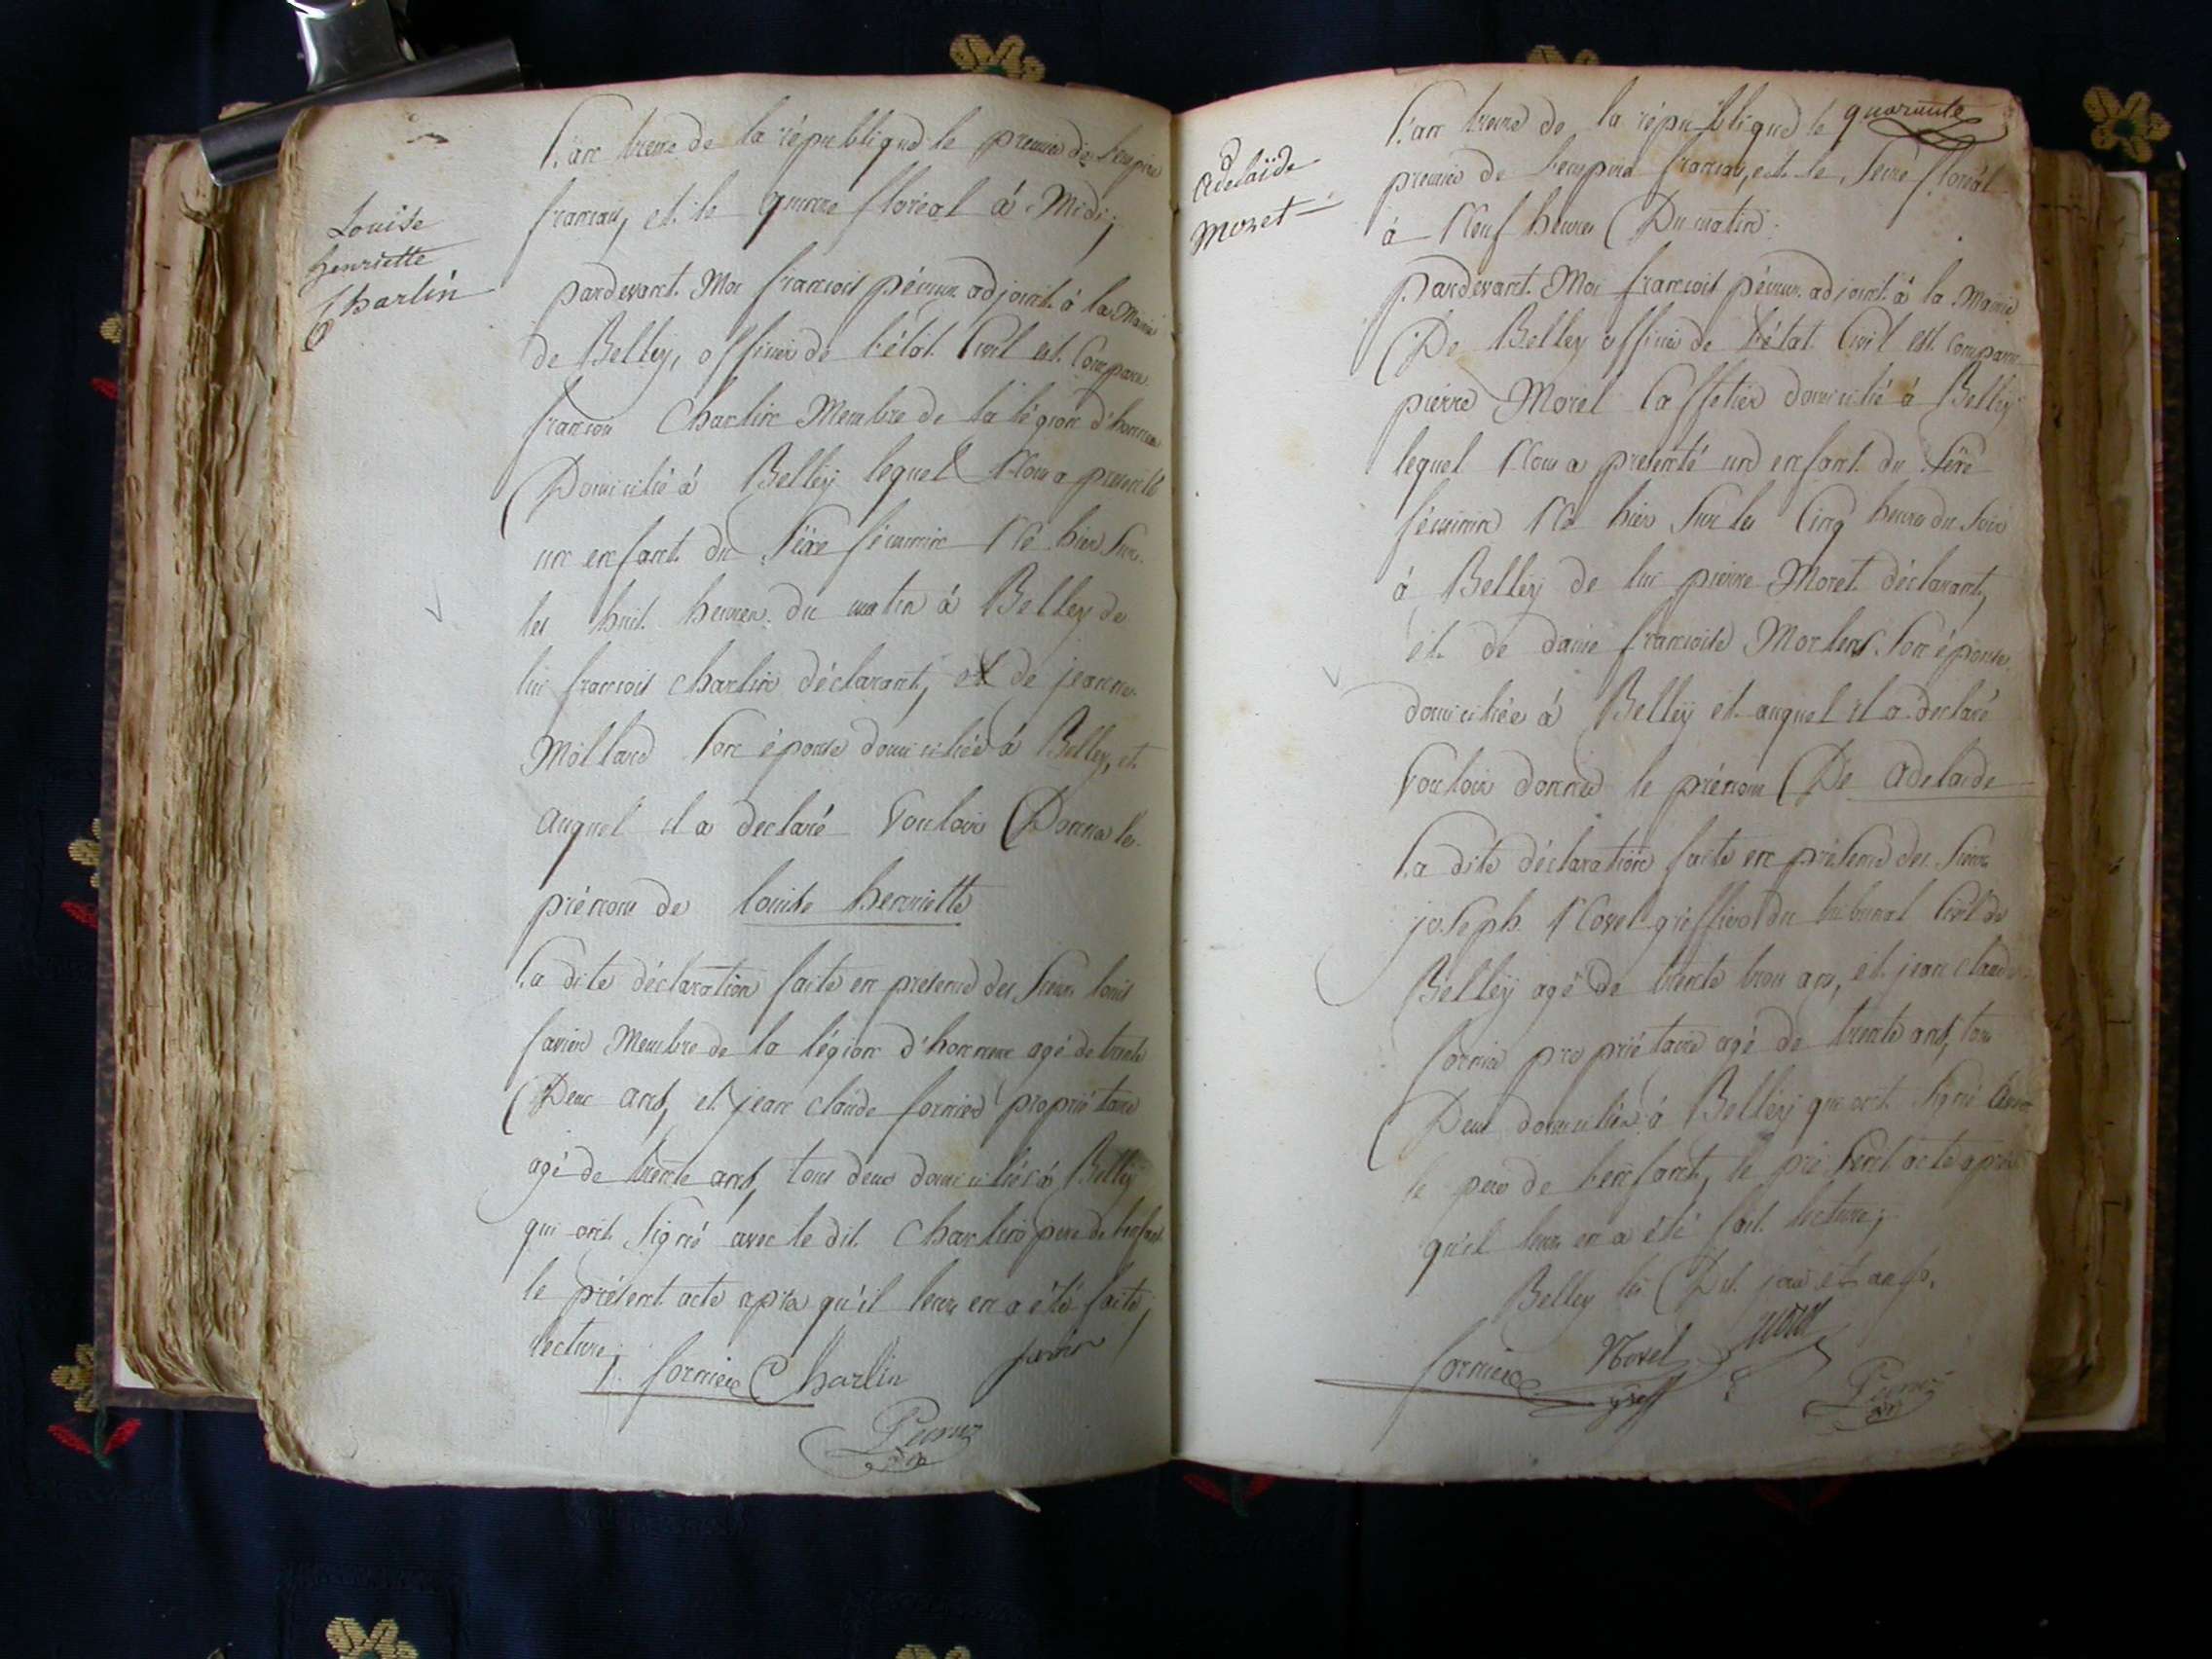 Louise
henriette
Charlin
L'an treize de la république le premier de l'empire
francais, et le quinze floréal à Midi;
pardevant Moi francois péruz adjoint à la Mairie
de Belley, officier de l'état Civil est Comparu
francois Charlin Membre de la légion d'honneur
Domicilié à Belley lequel Nous a presenté
un enfant du Sexe féminin Né hier sur
les huit heures du matin à Belley de
lui francois charlin déclarant, et de jeanne
Mollard son épouse domiciliée à Belley, et
auquel il a declaré Vouloir Donner les
prénoms de louise henriette
La dite déclaration faite en présence des Sieurs louis
favier Membre de la légion d'honneur agé de trente
Deux ans, et jean claude fornier propriétaire
agé de trente ans, tous deux domiciliés à Belley
qui ont Signé avec le dit Charlin père de l'enfant
le présent acte après qu'il leur en a été faite
lecture;
fornier Charlin favier
Peruz
adj
quarante
adelaïde
Moret
L'an treize de la république le
premier de l'empire francais, et le Seize floréal
à Neuf heures Du matin.
Pardevant Moi francois péruz adjoint à la Mairie
De Belley officier de l'état Civil est Comparu
pierre Moret Caffetier domicilié à Belley
lequel Nous a presenté un enfant du Sexe
féminin Né hier Sur les Cinq heures du Soir
à Belley de lui pierre Moret déclarant,
et de dame francoise Son épouse
domiciliée à Belley et auquel il a declaré
Vouloir donner le prénom De adelaide
La dite déclaration faite en présence des Sieurs
joseph Novel greffier du tribunal Civil de
Belley agé de trente trois ans, et jean claude
fornier propriétaire agé de trente ans, tous
Deux domiciliés à Belley qui ont Signé avec
le père de l'enfant, le présent acte après
qu'il leur en a été fait lecture;
Belley les Dit jour et an
fornier Novel Moret
greff
Peruz
adj